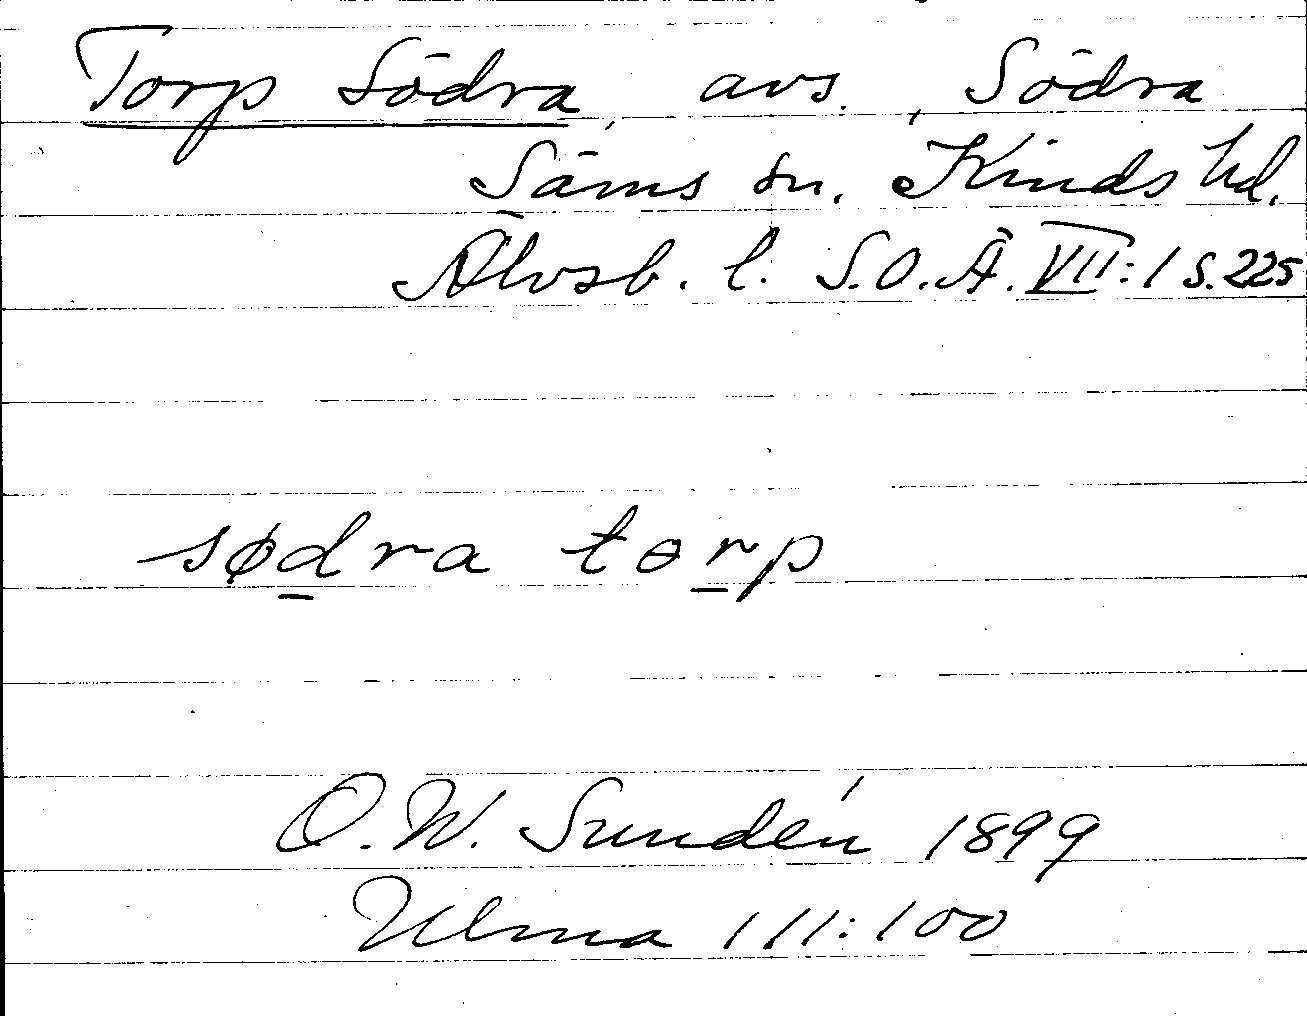 Torp Södra, avs., Södra
Säms sn. Kinds hd.
Älvsb. l. S.O.Ä. VII:1 s.225
sødra torp
O.W. Sundén 1899
Ulma 111:100